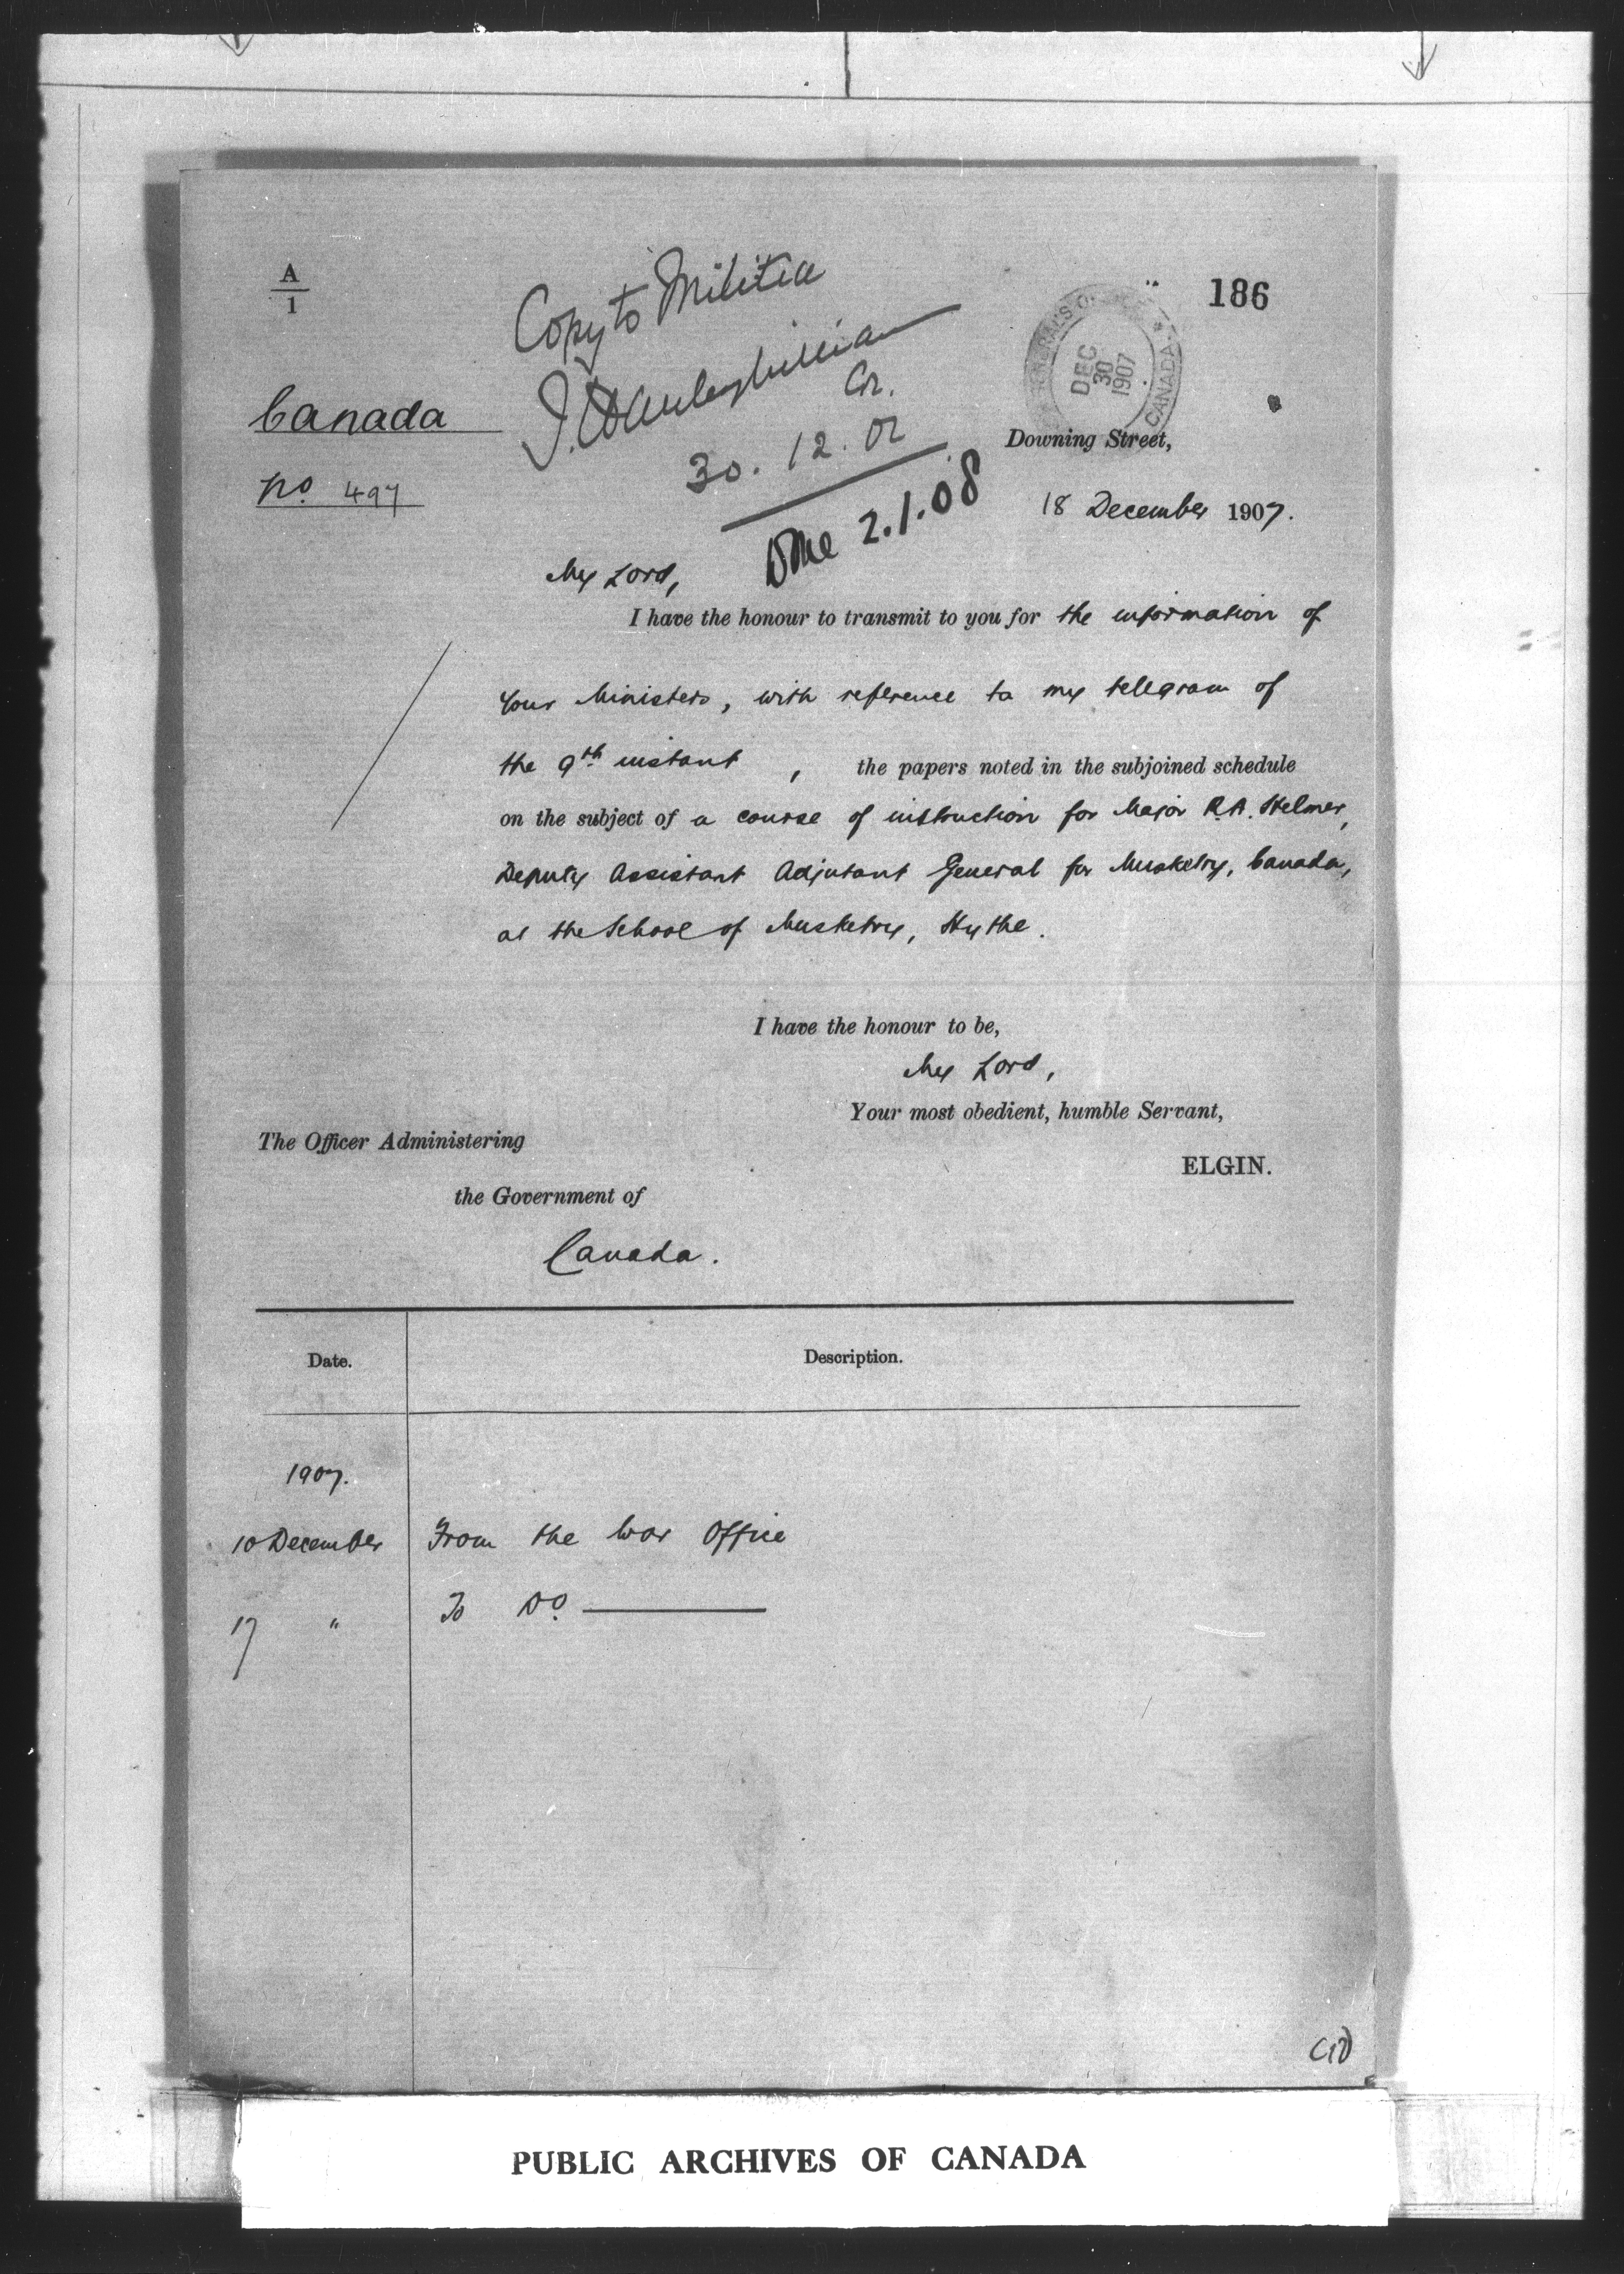 A
1
186
Copy to Militia
30.12.07
Done 2.1.08
DEC
30
1907
CANADA
Canada
No. 497
Downing Street,
18 December 1907.
My Lord,
I have the honour to transmit to you for the information of
your Ministers, with reference to my telegram of
the 9th instant, the papers noted in the subjoined schedule
on the subject of a course of instruction for Major R.A. Helmer,
Deputy Assistant Adjutant General for Musketry, Canada,
at the School of Musketry, Hythe.
I have the honour to be,
My Lord,
Your most obedient, humble Servant,
ELGIN.
The Officer Administering
the Government of
Canada.
Date. Description.
1907.
10 December From the War Office
17 " To Do.
PUBLIC ARCHIVES OF CANADA